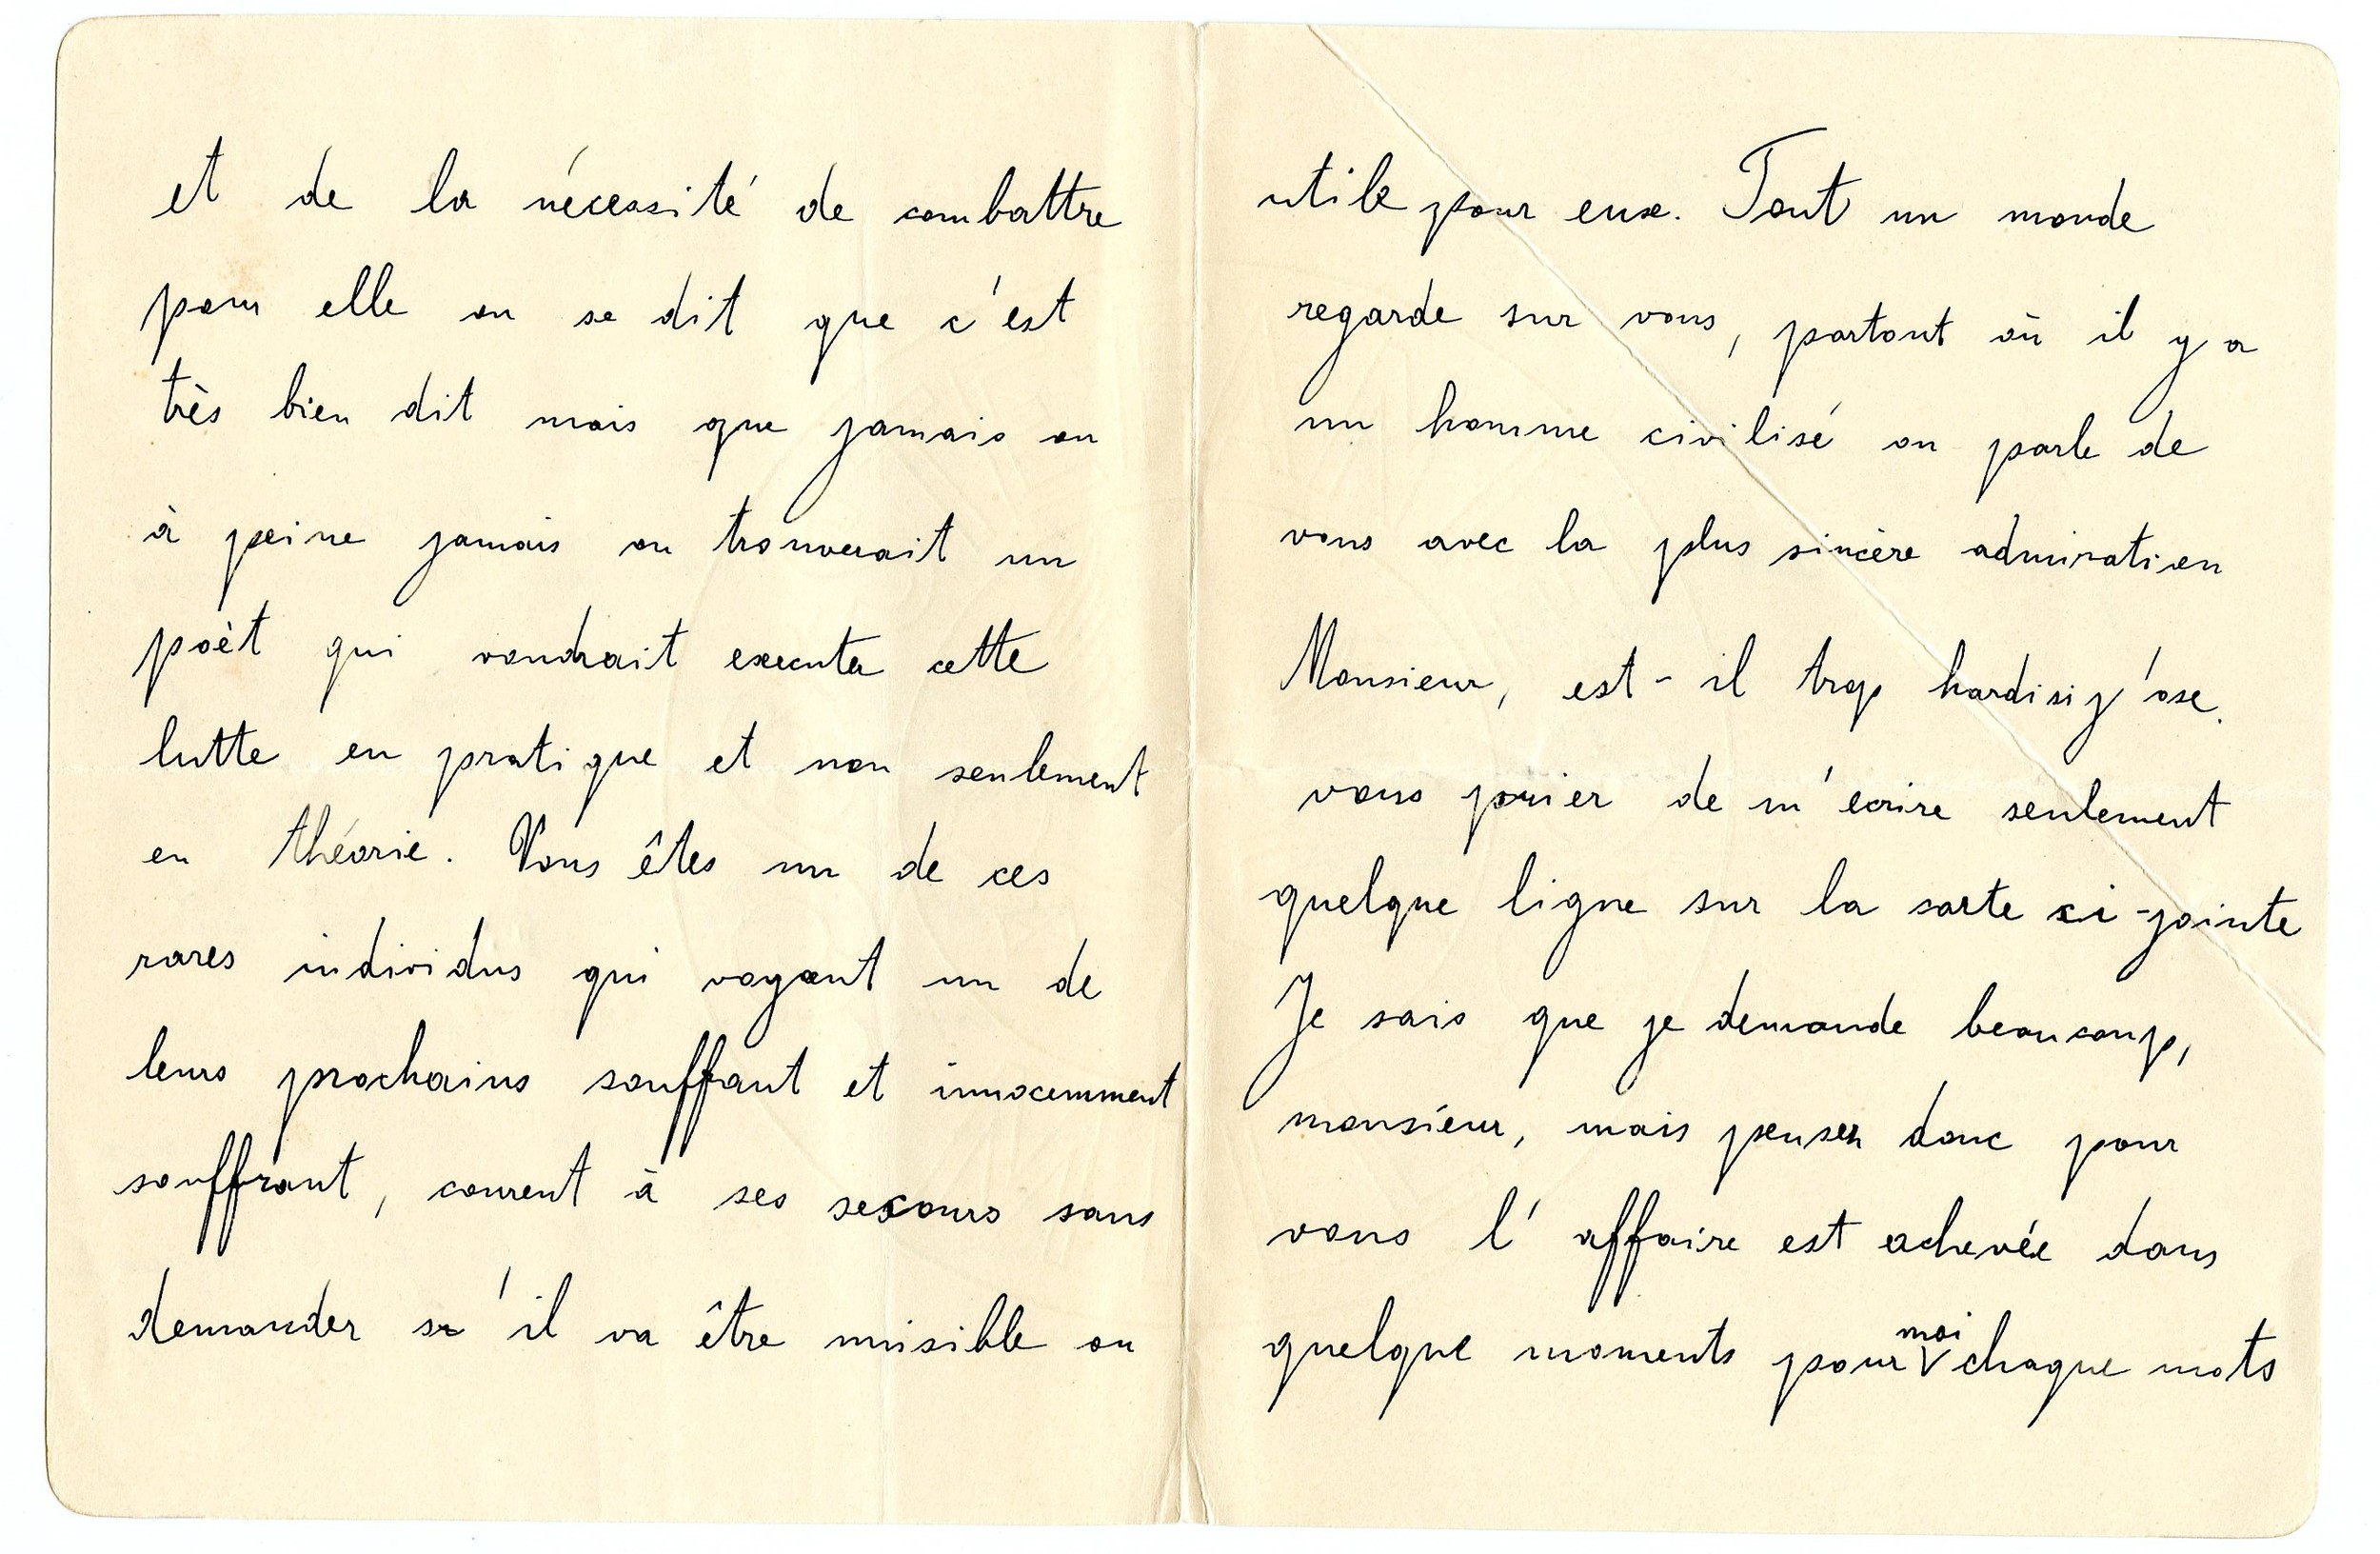 et de la nécessité de combattre
pour elle on se dit que c'est
très bien dit mais que jamais on
à peine jamais on trouverait un
poèt qui voudrait executer cette
lutte en pratique et non seulement
en théorie. Vous êtes un de ces
rares individus qui voyant un de
leurs prochains souffrant et innocemment
souffrant, courent à ses secours sans
demander s'il va être nuisible ou
utile pour eux. Tout un monde
regarde sur vous, partout où il y a
un homme civilisé on parle de
vous avec la plus sincère admiration
Monsieur, est-il trop hardi si j'ose
vous prier de m'écrire seulement
quelque ligne sur la carte ci-jointe
Je sais que je demande beaucoup,
monsieur, mais pensez donc pour
vous l'affaire est achevée dans
quelque moments pour moi chaque mots